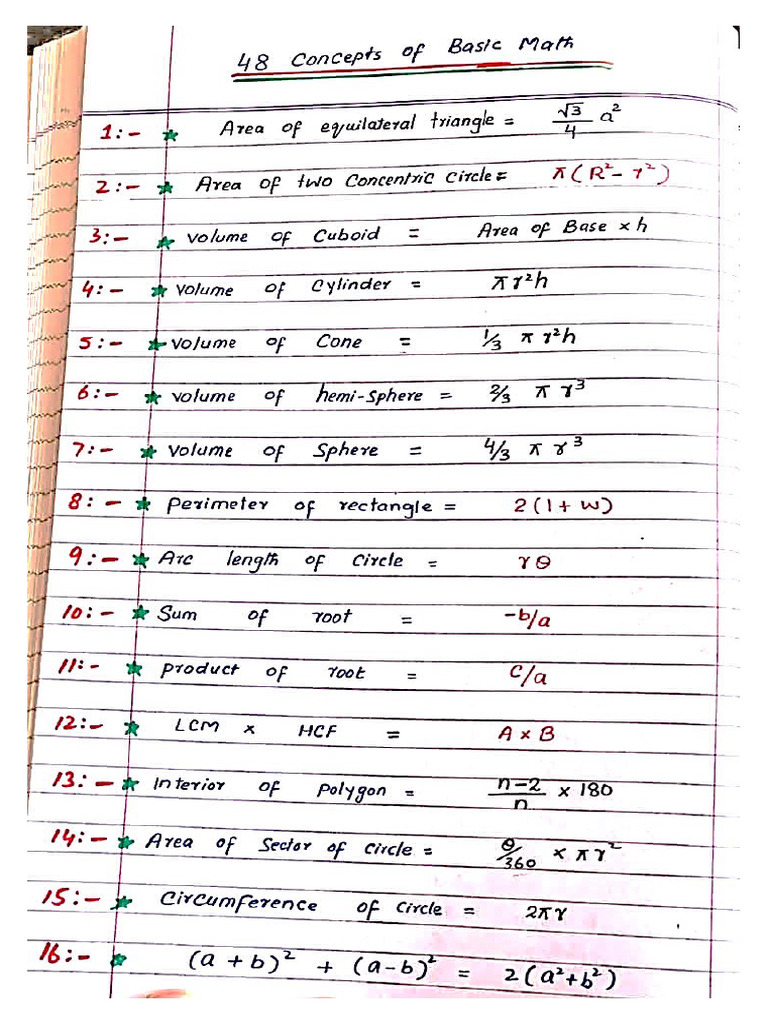 48 Concepts of Basic Math
1:- ★ Area of equilateral triangle = √3/4 a²
2:- ★ Area of two Concentric Circle = π(R²- r²)
3:- ★ Volume of Cuboid = Area of Base × h
4:- ★ Volume of Cylinder = πr²h
5:- ★ Volume of Cone = 1/3 πr²h
6:- ★ Volume of hemi-sphere = 2/3 πr³
7:- ★ Volume of Sphere = 4/3 πr³
8:- ★ Perimeter of rectangle = 2(l+w)
9:- ★ Arc length of Circle = rθ
10:- ★ Sum of root = -b/a
11:- ★ Product of root = c/a
12:- ★ LCM × HCF = A × B
13:- ★ Interior of Polygon = n-2/n × 180
14:- ★ Area of Sector of circle = θ/360 × πr²
15:- ★ Circumference of Circle = 2πr
16:- ★ (a+b)² + (a-b)² = 2(a²+b²)